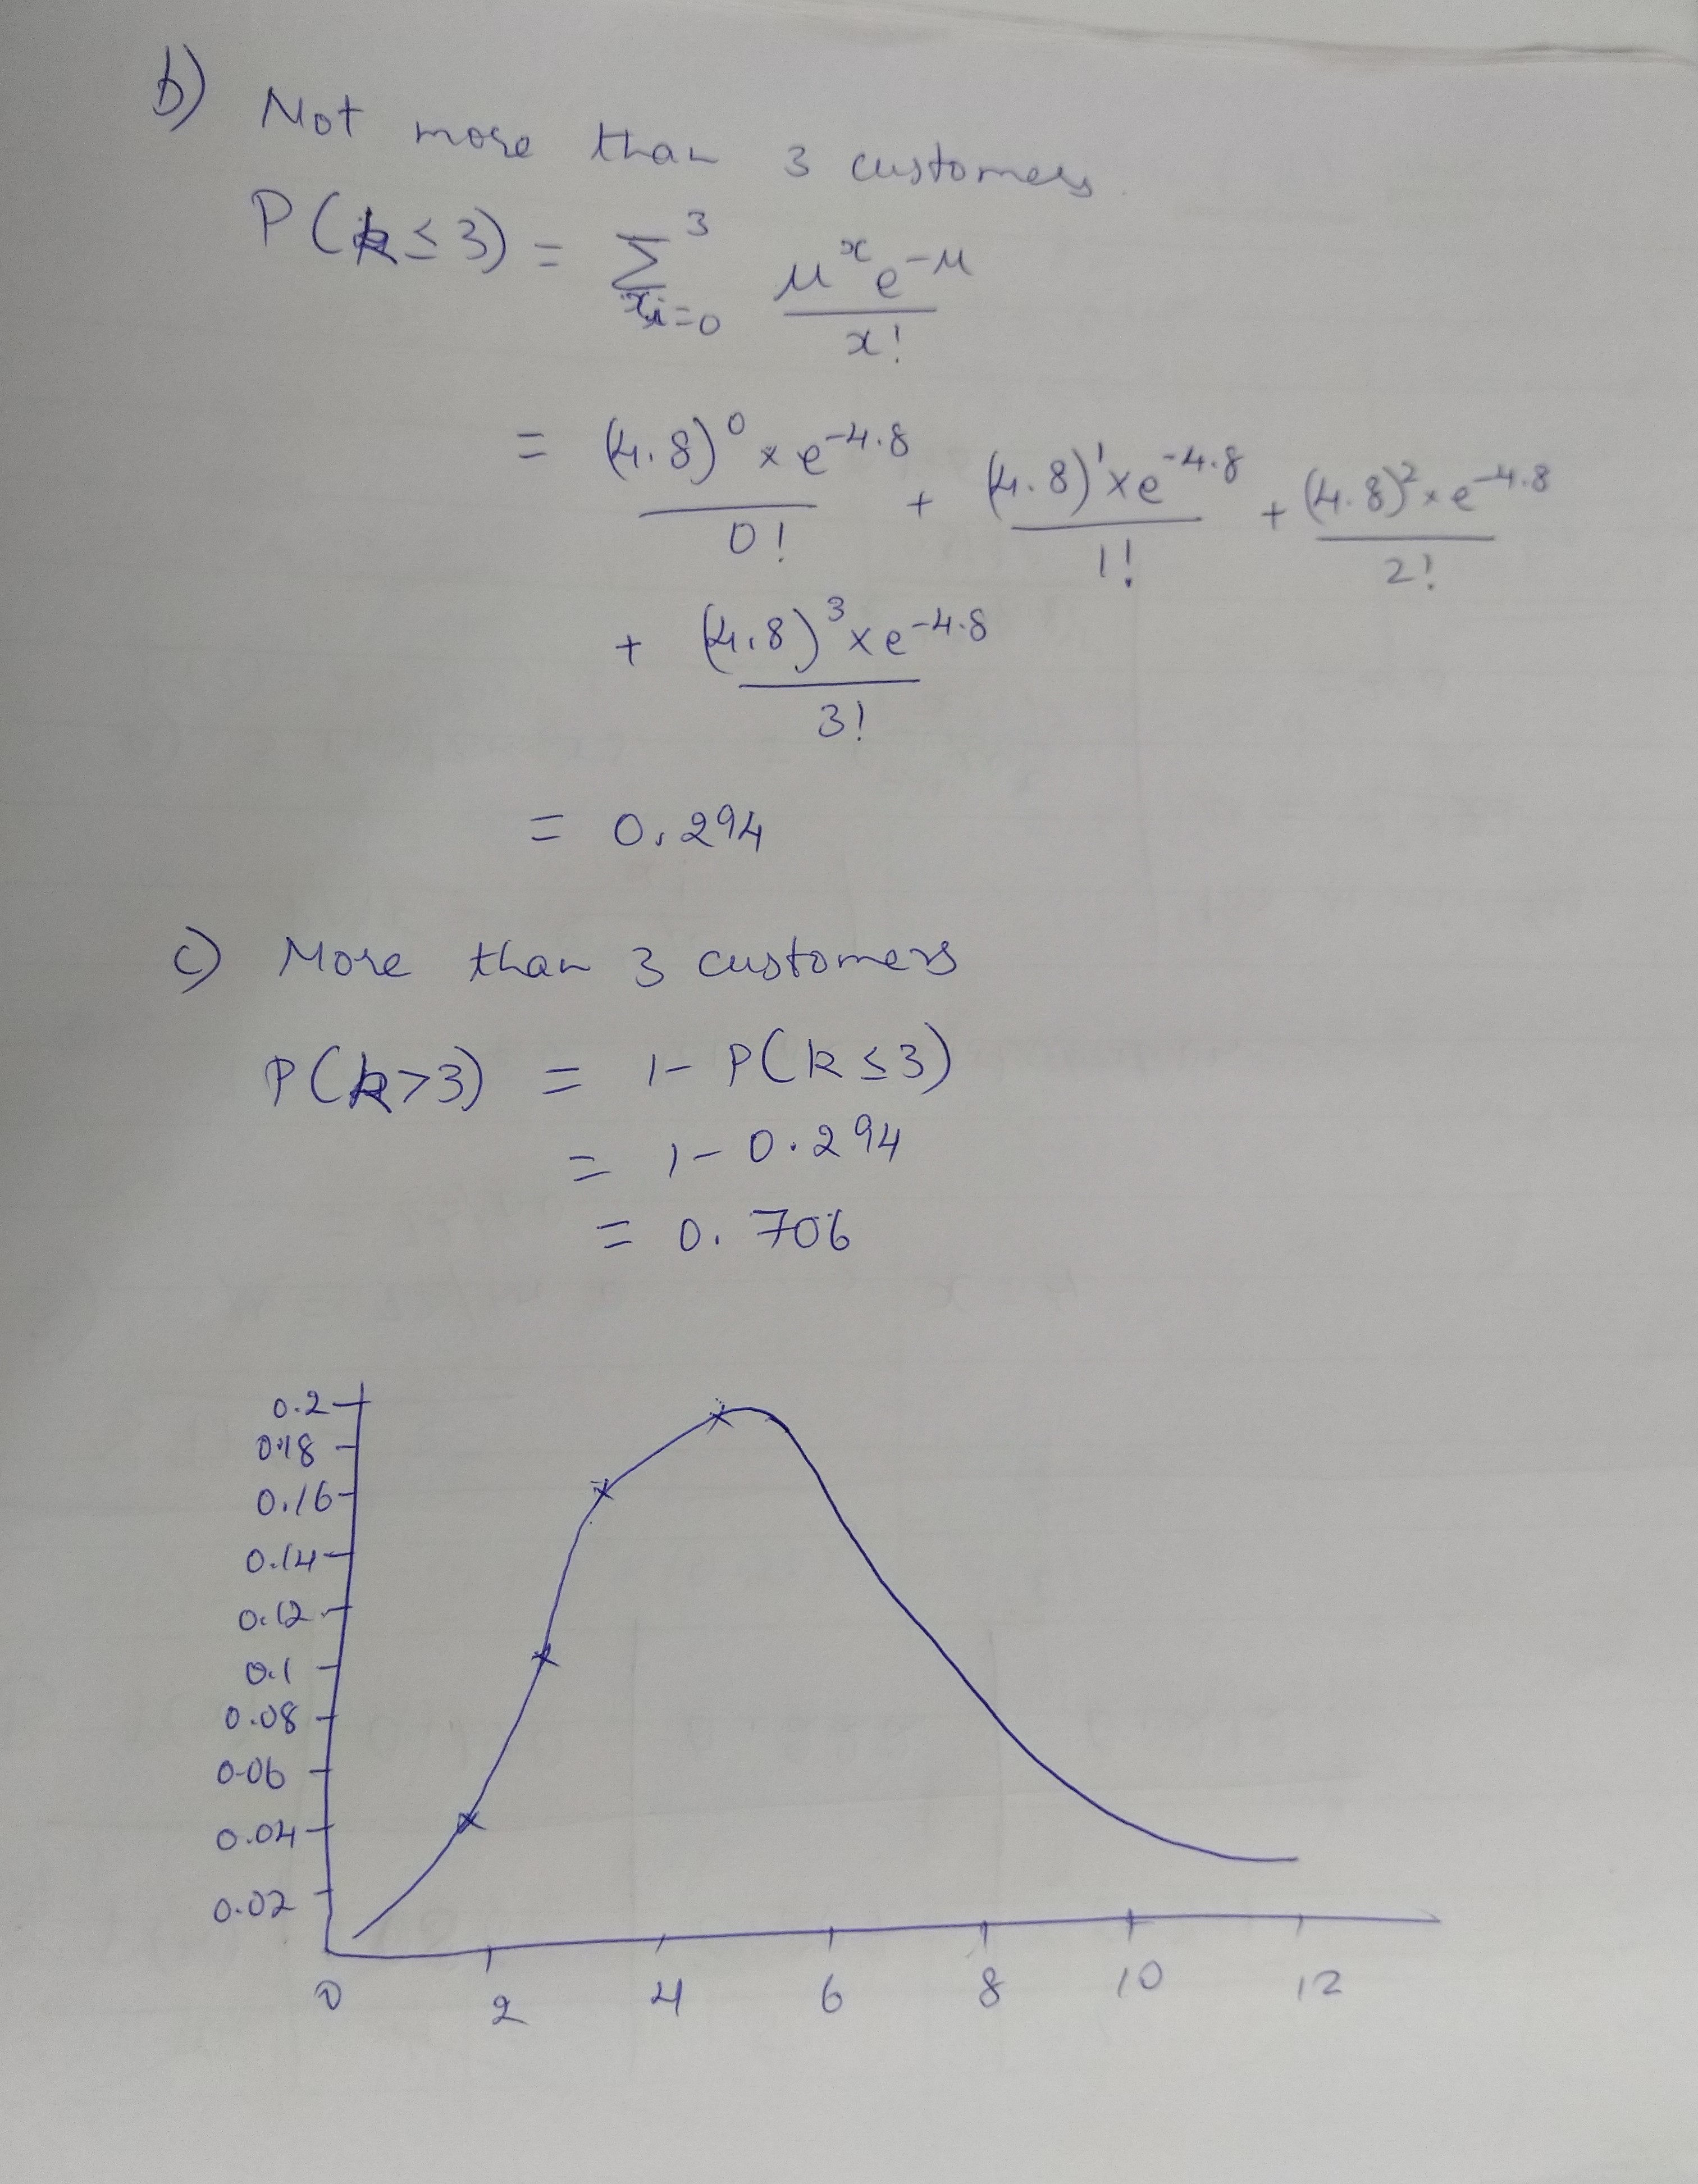 b) Not more than 3 customers.
P(k ≤ 3) = Σ³ₓᵢ₌₀ μˣe^-μ / x!
= (4.8)⁰ × e^-4.8 / 0! + (4.8)¹ × e^-4.8 / 1! + (4.8)² × e^-4.8 / 2!
+ (4.8)³ × e^-4.8 / 3!
= 0.294
c) More than 3 customers
P(k > 3) = 1 - P(k ≤ 3)
= 1 - 0.294
= 0.706
0.2
0.18
0.16
0.14
0.12
0.1
0.08
0.06
0.04
0.02
0 2 4 6 8 10 12